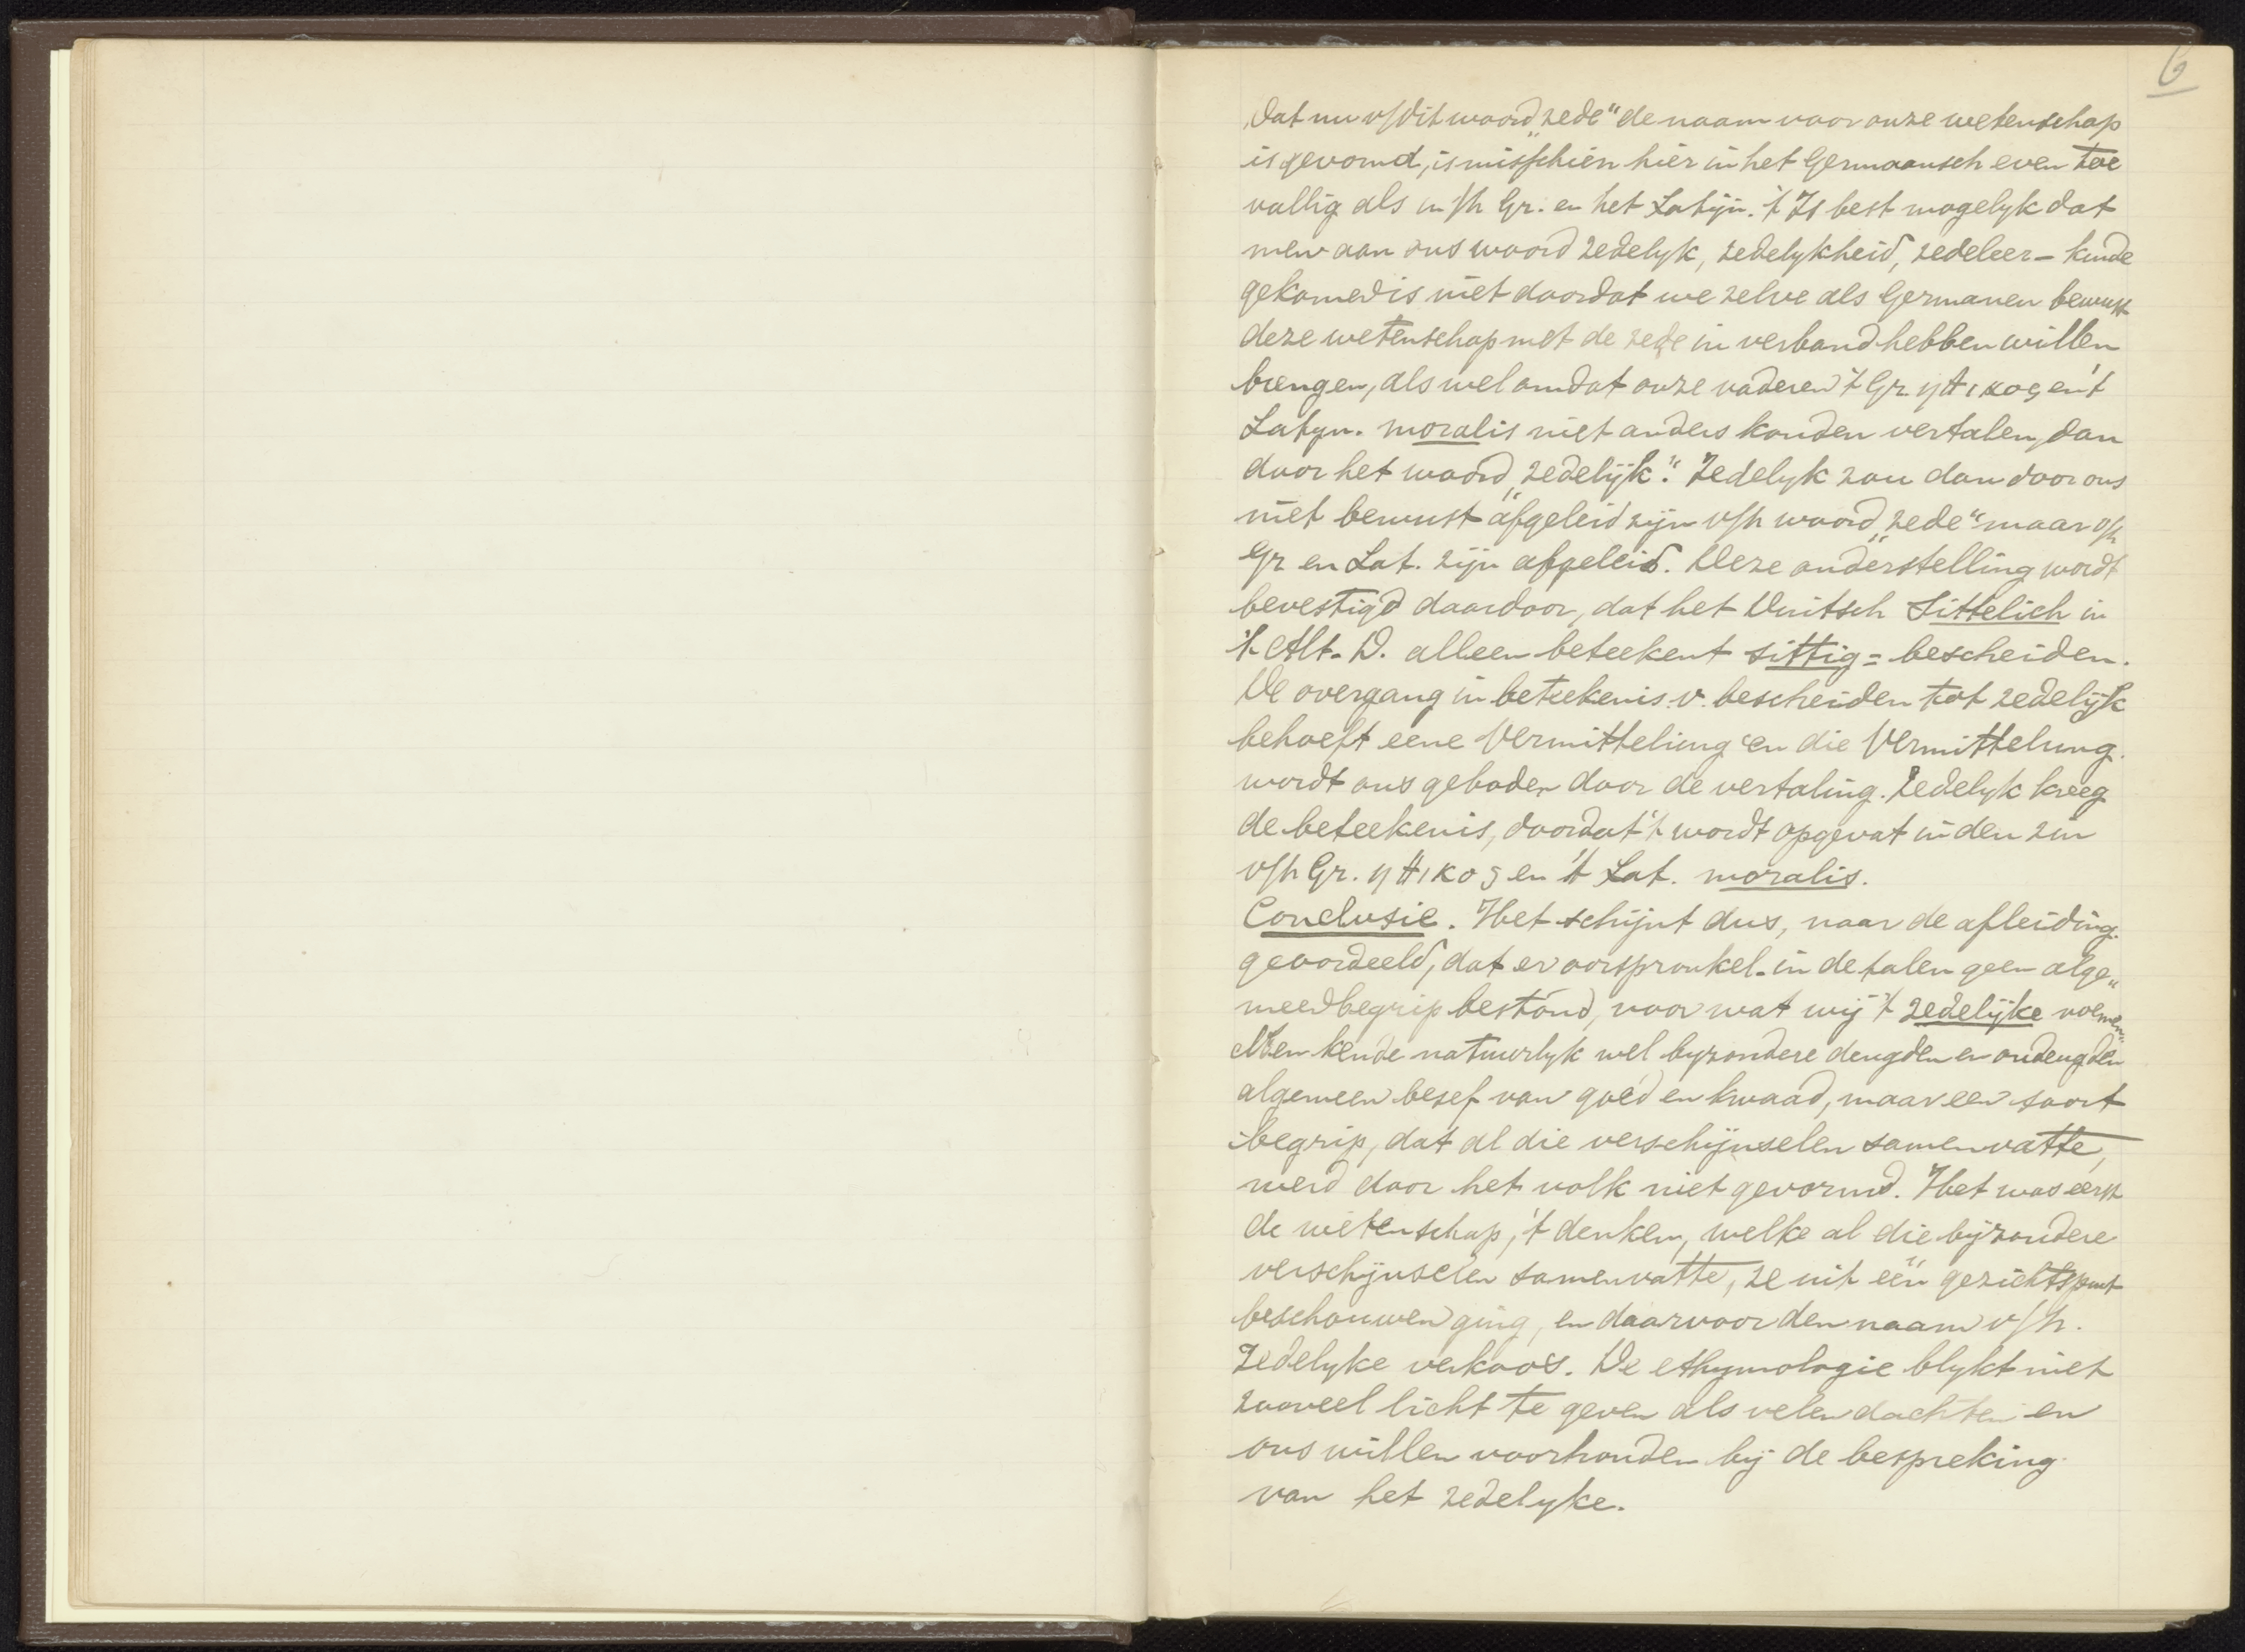 6
Dat nu v/dit woord „zede" de naam voor onze wetenschap
is gevormd, is misschien hier in het Germaansch even toe
vallig als in /h Gr. en het Latijn. 't Is best mogelyk dat
men aan ons woord zedelyk, zedelykheid, zedeleer - kunde
gekomen is niet doordat we zelve als Germanen bewust
deze wetenschap met de zede in verband hebben willen
brengen, als wel omdat onze vaderen 't Gr. ηθικος en 't
Latyn. moralis niet anders konden vertalen, dan
door het woord „zedelijk." Zedelyk zou dan door ons
niet bewust afgeleid zijn v/h woord „zede" maar v/h
Gr en Lat. zijn afgeleid. Deze onderstelling wordt
bevestigd daardoor, dat het Duitsch Sittelich in
't Alt. D. alleen beteekent sittig = bescheiden.
De overgang in beteekenis v. bescheiden tot zedelijk
behoeft eene Vermitteling en die Vermittelung
wordt ons geboden door de vertaling. Zedelyk kreeg
de beteekenis, doordat 't wordt opgevat in den zin
v/h Gr. ηθικος en 't Lat. moralis.
Conclusie. Het schijnt dus, naar de afleiding
geoordeeld, dat er oorspronkel. in de talen geen alge„
meen begrip bestond, voor wat wij 't zedelijke noemen
Men kende natuurlyk wel byzondere deugden en ondeugden
algemeen besef van goed en kwaad, maar een soort
begrip, dat al die verschijnselen samenvatte,
werd door het volk niet gevormd. Het was eerst
de wetenschap, 't denken, welke al die byzondere
verschijnselen samenvatte, ze uit één gezichtspunt
beschouwen ging, en daarvoor den naam v/h.
Zedelyke verkoos. De ethymologie blykt niet
zooveel licht te geven als velen dachten en
ons willen voorhouden bij de bespreking
van het zedelyke.